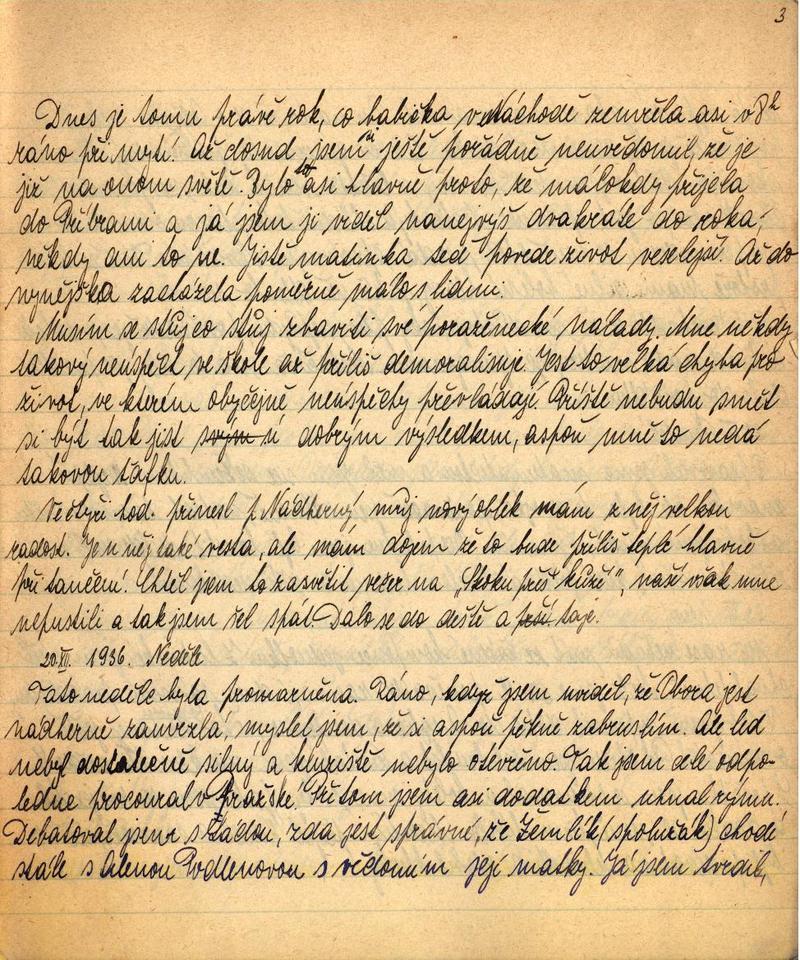 3
Dnes je tomu právě rok, co babička v Náchodě zemřela asi v 8 h
ráno při mytí. Až dosud jsem si ještě pořádně neuvědomil, že je
již na onom světě. Bylo to asi hlavně proto, že málokdy přijela
do Příbrami a já jsem ji viděl nanejvýš dvakráte do roka,
někdy ani to ne. Jistě matinka teď povede život veselejší. Až do
nynějška zacházela poměrně málo s lidmi.
Musím se stůjco stůj zbaviti své poraženecké nálady. Mne někdy
takový neúspěch ve škole až příliš demoralisuje. Jest to velká chyba pro
život, ve kterém obyčejně neúspěchy převládají. Příště nebudu smět
si být tak jist svým si dobrým výsledkem, aspoň mně to nedá
takovou ťafku.
Ve čtyři hod. přinesl p. Nádherný můj nový oblek mám z něj velkou
radost. Je u něj také vesta, ale mám dojem že to bude příliš teplé hlavně
při tančení. Chtěl jsem to zasvětit večer na „Skoku přes kůži", naši však mne
nepustili a tak jsem šel spát. Dalo se do deště a prší taje.
20. XII. 1936. Neděle
Tato neděle byla promarněna. Ráno, když jsem uviděl, že Obora jest
nádherně zamrzlá, myslel jsem, že si aspoň pěkně zabruslím. Ale led
nebyl dostatečně silný a kluziště nebylo otevřeno. Tak jsem celé odpo-
ledne procoural v Pražské. Při tom jsem asi dodatkem uhnal rýmu.
Debatoval jsem s Láďou, zda jest správné, že Žemlík (spolužák) chodí
stále s Alenou Podlenovou s vědomím její matky. Já jsem tvrdil,